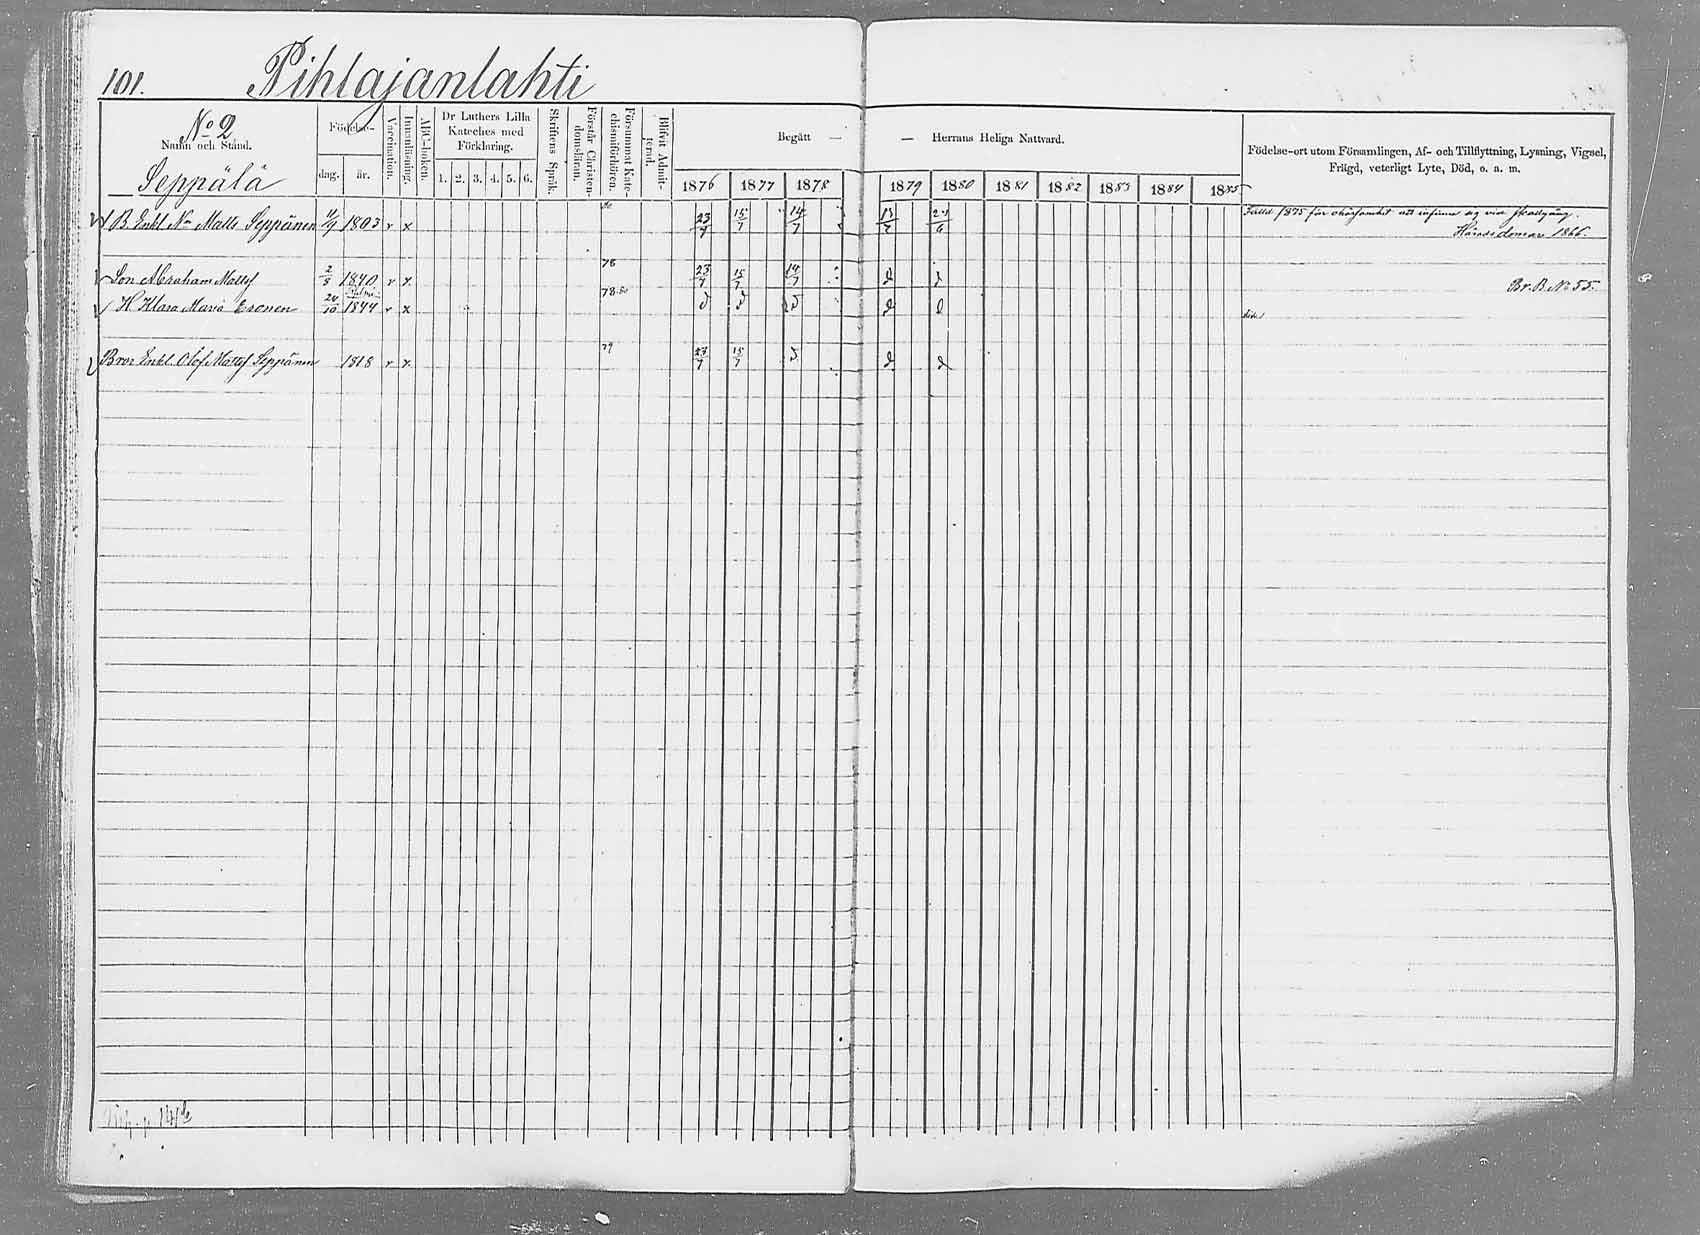 101. Pihlajanlahti
No 2
Namn och Stånd.
Seppälä
Födelse-
dag. år.
Vaccination.
Innanläsning.
ABC-boken.
Dr Luthers Lilla
Kateches med
Förklaring.
1. 2. 3. 4. 5. 6.
Skriftens Språk.
Förstår Christen-
domsläran.
Försummat Kate-
chismiförhören.
Blifvit Admit-
terad.
Begått — — Herrans Heliga Nattvard.
1876 1877 1878 1879 1880 1881 1882 1883 1884 1885
Födelse-ort utom Församlingen, Af- och Tillflyttning, Lysning, Vigsel,
Frägd, veterligt Lyte, Död, o. a. m.
B. Enkl. Nm Matts Seppänen 1803 v x 23/7 15/7 14/7 Fälld 1875 för ohörsamhet att infinna sig vid skallgång.
Häradsdomare 1866.
Son Abraham Mattsf 2/3 1840 v x 78 23/7 15/7 14/7 d d Br. B. No 55.
H. Klara Maria Eronen 24/10 1844 v x 78.80 d d d d d
Bror Enkl. Olof Mattsf Seppänen 1818 v x 79 23/7 15/7 d d d